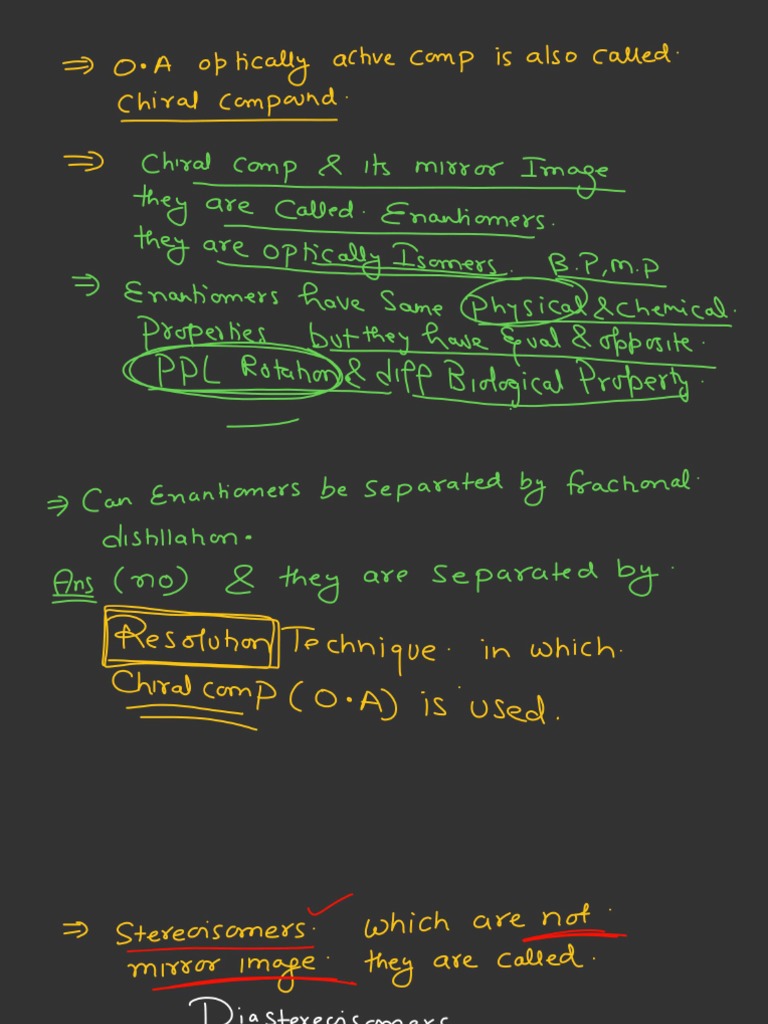 ⇒ O.A optically active comp is also called.
Chiral Compound.
⇒ Chiral comp & its mirror Image
they are called. Enantiomers.
they are optically Isomers. B.P, m.p
⇒ Enantiomers have same Physical & Chemical.
Properties but they have Equal & opposite.
PPL Rotation & diff Biological Property.
⇒ Can Enantiomers be separated by fractional.
distillation.
Ans (no) & they are separated by.
Resolution Technique. in which.
Chiral comp (O.A) is used.
⇒ Stereoisomers. which are not.
mirror image. they are called.
Diastereoisomers